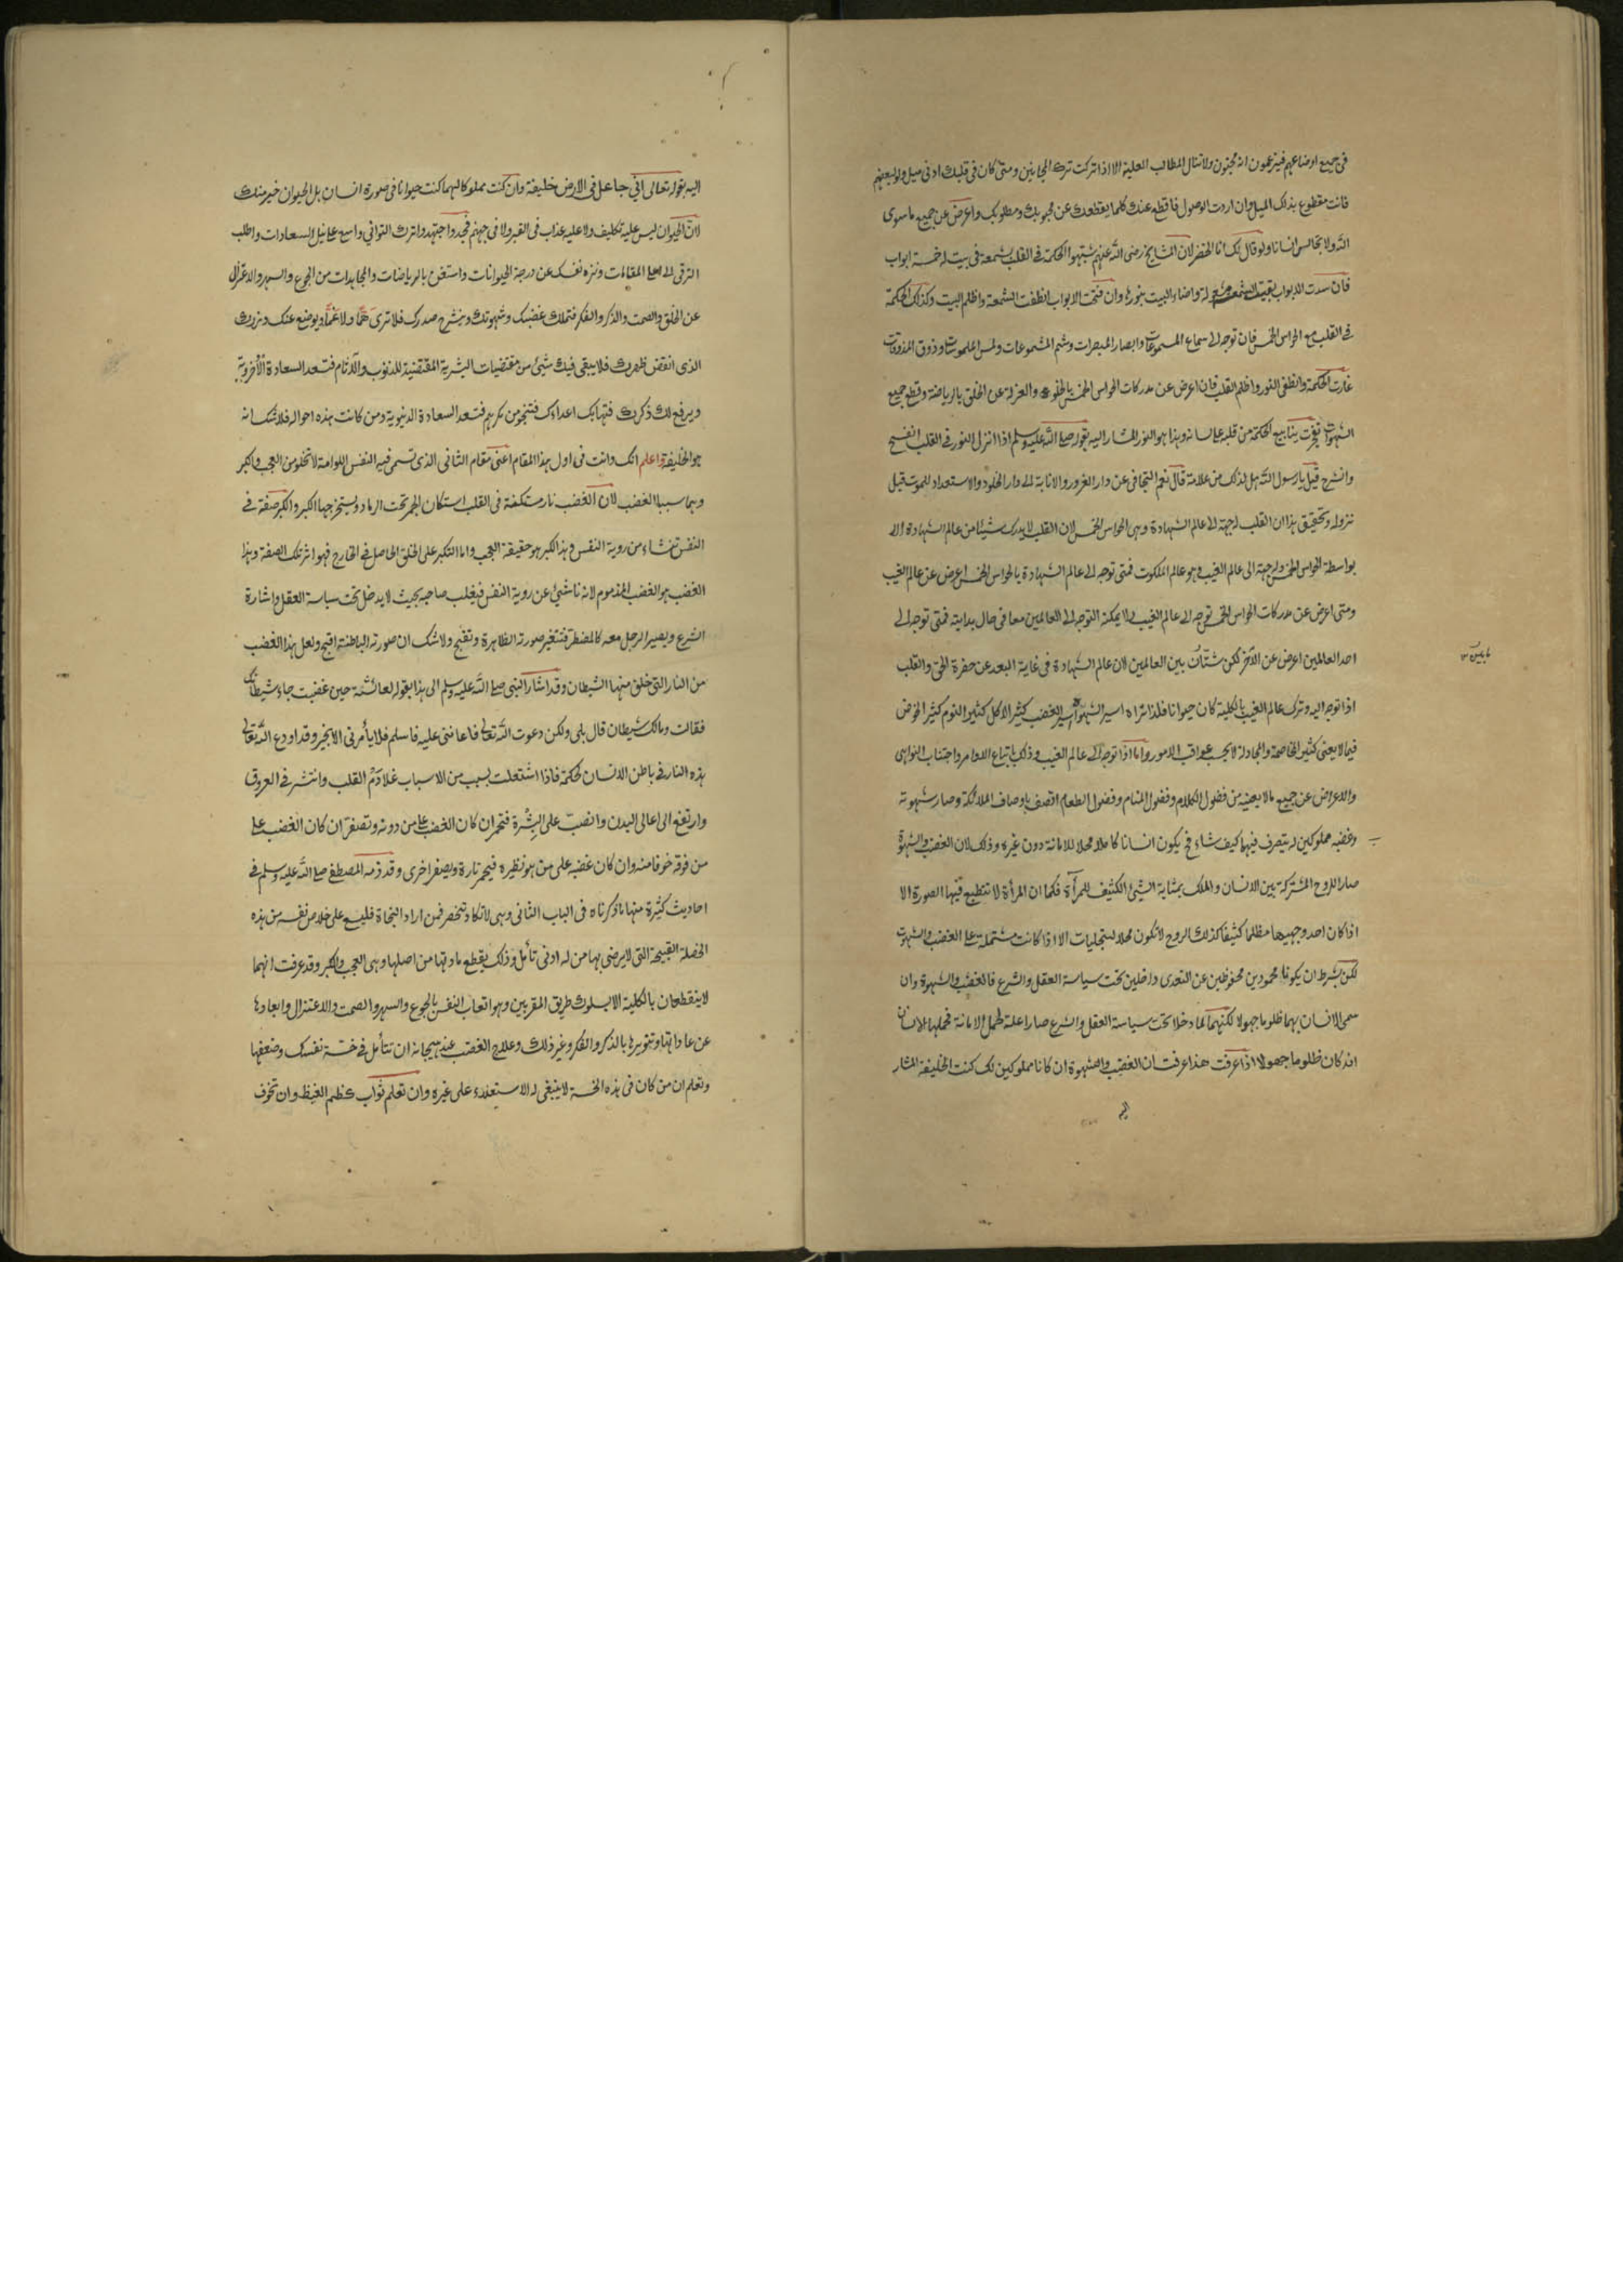 في جميع اوضاعهم فيزعمون انه مجنون ولا تنال المطالب العلية الا اذا تركت ترك المجانين ومتى كان في قلبك ادنى ميل ولو لبعضهم
فانت مقطوع بذلك الميل وان اردت الوصول فاقطع عنك كلما يقطعك عن محبوبك ومطلوبك واعرض عن جميع ما سوى
الله ولا تجالس انسانا ولو قال لك انا الخضر لان المشايخ رضى الله عنهم شبهوا الحكمة في القلب بشمعة في بيت له خمسة ابواب
فان سدت الابواب بقيت الشمعة مشعولة واضاء البيت بنورها وان فتحت الابواب انطفت الشمعة واظلم البيت وكذلك الحكمة
في القلب مع الحواس الخمس فان توجه الى سماع المسموعات وابصار المبصرات وشم المشمومات ولمس الملموسات وذوق المذوقات
غارت الحكمة وانطفى النور واظلم القلب فان اعرض عن مدركات الحواس الخمس بالخلوة والعزلة عن الخلق بالرياضة وقطع جميع
الشهوات تفجرت ينابيع الحكمة من قلبه على لسانه وهذا هو النور المشار اليه بقوله صلى الله عليه وسلم اذا انزل النور في القلب انفسح
وانشرح قيل يا رسول الله هل لذلك من علامة قال نعم التجافى عن دار الغرور والانابة الى دار الخلود والاستعداد للموت قبل
نزوله وتحقيق هذا ان القلب له جهة الى عالم الشهادة وهى الحواس الخمس لان القلب لا يدرك شيئا من عالم الشهادة الا
بواسطة الحواس الخمس وله جهة الى عالم الغيب وهو عالم الملكوت فمتى توجه الى عالم الشهادة بالحواس الخمس اعرض عن عالم الغيب
ومتى اعرض عن مدركات الحواس الخمس توجه الى عالم الغيب ولا يمكنه التوجه الى العالمين معا في حال بدايته فمتى توجه الى
احد العالمين اعرض عن الآخر لكن شتّان بين العالمين لان عالم الشهادة في غاية البعد عن حضرة الحق والقلب
اذا توجه اليه وترك عالم الغيب بالكلية كان حيوانا فلذا تراه اسير الشهوة اسير الغضب كثير الاكل كثير النوم كثير الخوض
فيما لا يعنى كثير المخاصمة والمجادلة لا يحسب عواقب الامور واما اذا توجه الى عالم الغيب وذلك باتباع الاوامر واجتناب النواهى
والاعراض عن جميع ما لا يعنيه من فضول الكلام وفضول المنام وفضول الطعام اتصف باوصاف الملائكة وصار شهوته
وغضبه مملوكين له يتصرف فيهما كيف شاء فح يكون انسانا كاملا محلا للامانة دون غيره وذلك لان الغضب والشهوة
صار للروح المشتركة بين الانسان والملك بمثابة الشئ الكثيف للمرآة فكما ان المرأة لا تنطبع فيها الصورة الا
اذا كان احد وجهيها مظلما كثيفا كذلك الروح لا تكون محلا للتجليات الا اذا كانت مشتملة على الغضب والشهوت
لكن بشرط ان يكونا محمودين محفوظين عن التعدى داخلين تحت سياسة العقل والشرع فالغضب والشهوة وان
سمى الانسان بهما ظلوما جهولا لكنهما لما دخلا تحت سياسة العقل والشرع صارا علة لحمل الامانة فحملها الانسان
انه كان ظلوما جهولا اذا عرفت هذا عرفت ان الغضب والشهوة ان كانا مملوكين لك كنت الخليفة المشار
اليه
اليه بقوله تعالى انّي جاعل في الارض خليفة وان كنت مملوكا لهما كنت حيوانا في صورة انسان بل الحيوان خير منك
لانّ الحيوان ليس عليه تكليف ولا عليه عذاب في القبر ولا في جهنم فجد واجتهد واترك التوانى واسع على نيل السعادات واطلب
الترقى الى اعلا المقامات ونزه نفسك عن درجة الحيوانات واستعن بالرياضات والمجاهدات من الجوع والسهر والاعتزال
عن الخلق والصمت والذكر والفكر فتملك غضبك وشهوتك وينشرح صدرك فلا ترى همًّا ولا غمًّا ويوضع عنك وزرك
الذى انقض ظهرك فلا يبقى فيك شئ من مقتضيات البشرية المقتضية للذنوب والآثام فتسعد السعادة الأخروية
ويرفع لك ذكرك فتهابك اعداؤك فتنجو من مكرهم فتسعد السعادة الدنيوية ومن كانت هذه احواله فلا شك انه
هو الخليفة واعلم انك وانت في اول هذا المقام اعنى مقام الثانى الذى تسمى فيه النفس اللوامة لا تخلو من العجب والكبر
وهما سببا الغضب لان الغضب نار مستكنة في القلب استكان الجمر تحت الرماد ويستخرجها الكبر والكبر صفة في
النفس تنشاء من روية النفس وهذا الكبر هو حقيقة العجب واما التكبر على الخلق الحاصل في الخارج فهو اثر تلك الصفة وهذا
الغضب هو الغضب المذموم لانه ناشئ عن روية النفس فيغلب صاحبه بحيث لا يدخل تحت سياسة العقل واشارة
الشرع ويصير الرجل معه كالمضطر فتتغير صورته الظاهرة وتقبح ولا شك ان صورته الباطنة اقبح ولعل هذا الغضب
من النار التى خلق منها الشيطان وقد اشار النبى صلى الله عليه وسلم الى هذا بقوله لعائشة حين غضبت جاء شيطانك
فقالت ومالك شيطان قال بلى ولكن دعوت الله تعالى فاعاننى عليه فاسلم فلا يأمرنى الا بخير وقد اودع الله تعالى
هذه النار في باطن الانسان لحكمة فاذا اشتعلت بسبب من الاسباب غلا دَمُ القلب وانتشر في العروق
وارتفع الى اعالى البدن وانصبّ على البشرة فتحمر ان كان الغضب على من دونه وتصفرّ ان كان الغضب على
من فوقه خوفا منه وان كان غضبه على من هو نظيره فيحمر تارة ويصفر اخرى وقد ذمه المصطفى صلى الله عليه وسلم في
احاديث كثيرة منها ما ذكرناه في الباب الثانى وهى لا تكاد تنحصر فمن اراد النجاة فليسع على خلاص نفسه من هذه
الخصلة القبيحة التى لا يرضى بها من له ادنى تأمل وذلك بقطع مادتها من اصلها وهى العجب والكبر وقد عرفت انهما
لا ينقطعان بالكلية الا بسلوك طريق المقربين وهو اتعاب النفس بالجوع والسهر والصمت والاعتزال وابعادها
عن عاداتها وتنويرها بالذكر والفكر وغير ذلك وعلاج الغضب عند هيجانه ان تتأمل في خسّة نفسك وضعفها
وتعلم ان من كان في هذه الخسة لا ينبغى له الاستعلاء على غيره وان تعلم ثواب كظم الغيظ وان تخوف